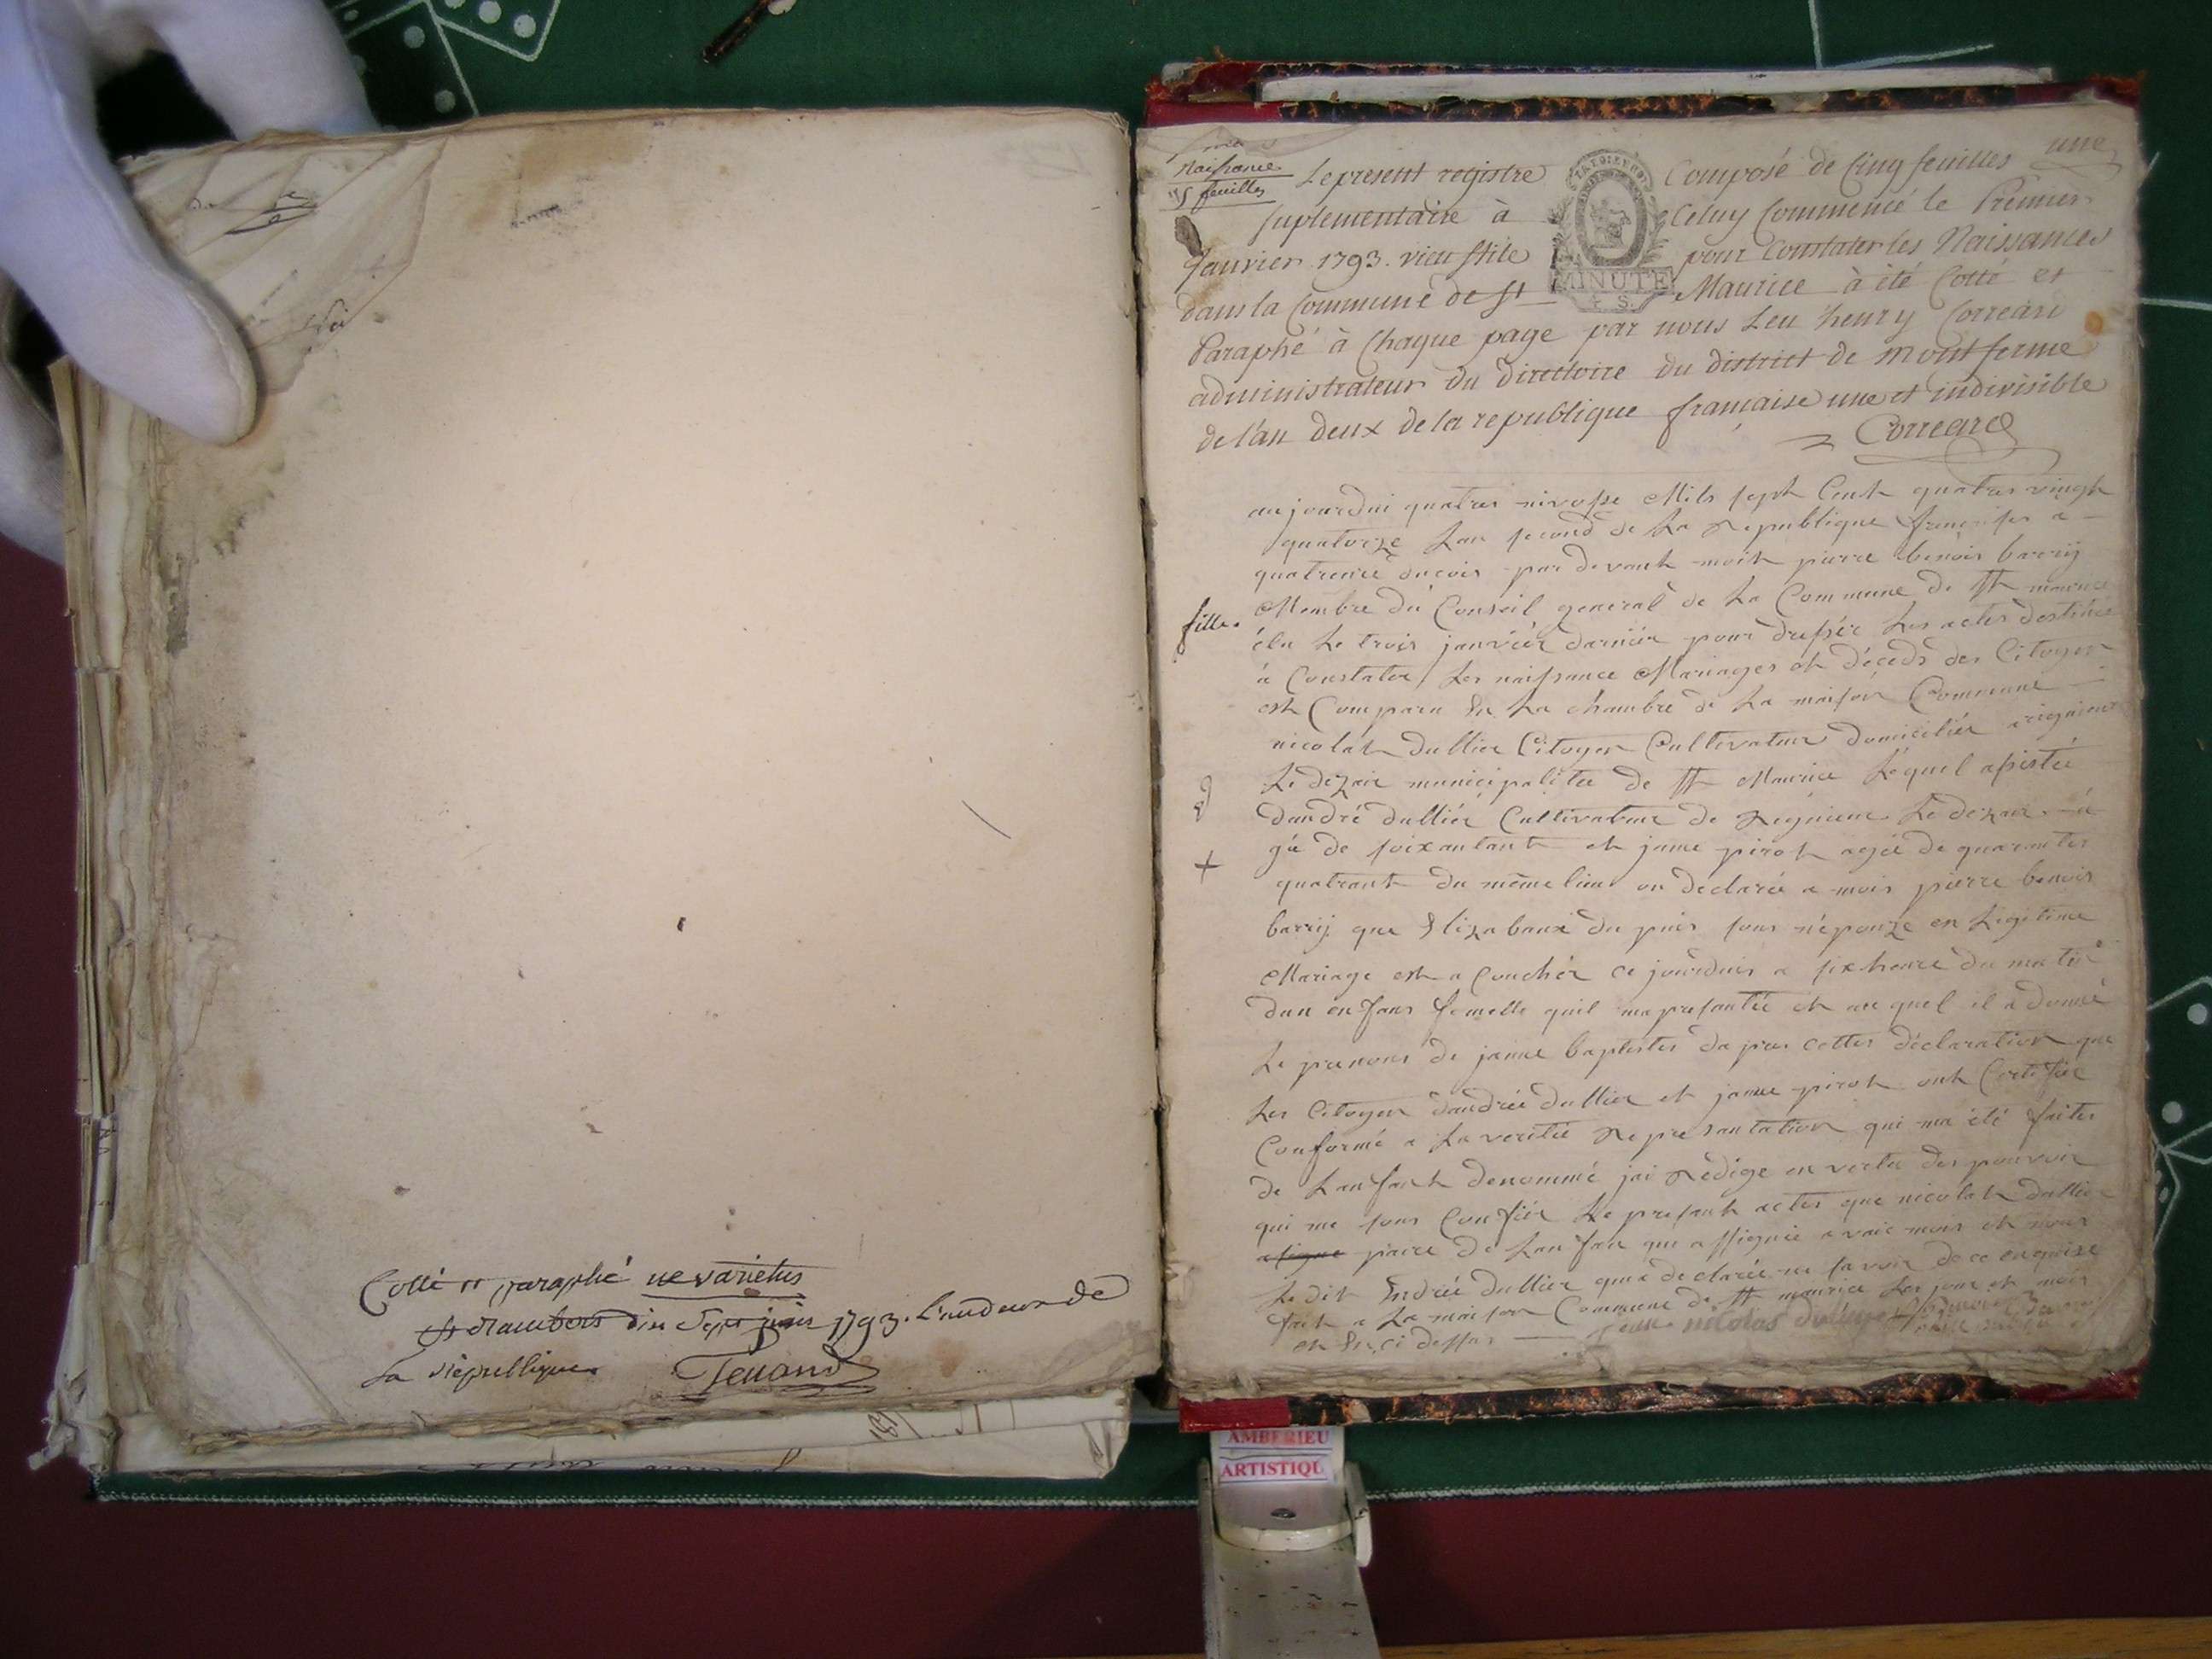 Collé et paraphé ne varietus
St Rambert dix Sept juin 1793. L'an deux de
La République Tenand
Naissance
5 feuilles
une
Le present registre Composé de Cinq feuilles
suplementaire à Celuy Commencé le Prémier
Janvier 1793. vieu stile pour Constater les Naissances
MINUTE
4 S.
dans la Commune de St Maurice à été Cotté et
Paraphé à Chaque page par nous Leu henry Correard
administrateur du directoire du district de Montferme
de l'an deux de la republique française une et indivisible
Correard
aujourdui quatres nivosse Mils sept Cent quatres vingh
quatorze Lan second de La Republique françaises a
quatreure du soir par devant moit pierre benois barrij
fille.
Membre du Conseil general de La Commune de St maurice
élu Le trois janviér darniér pour dressér Les actes destinés
a Constater Les naissance Mariages et déceds des Citoyen
est Comparu En La chambre de La maison Commune
nicolat dullier Citoyen Cultivateur domiciliée a rignieux
Le dezair municipalitée de St Maurice Lequel assistée
dandré dulliér Cultivateur de Regnieux Le dezair a
gée de soixantant et jeame pirot agée de quarantes
+
quatrant du même lieu on declarée a mois pierre benois
barrij que Elizabaux du puis sons népouze en Legitime
Mariage est a Couchér ce jourduis a six heure du matin
dun enfans femelle quil ma presantée et au quel il a donné
Le prenons de jeanne baptistes dapres cettes déclaration que
Les Citoyen dandrée dullier et jeame pirot ont Certifiée
Conformé a La veritée Represantation qui ma été faites
de Lanfant denommé jai Redige en vertu des pouvoir
qui me sons Confiée Le presant actes que nicolat dullier
a signe piere de Lanfan qui a ssignée avaic mois et nous
Le dit Endrée dullier qui a declarée ne savoir de ce enquise
fait a La maison Commune de St maurice Les jour et mois
en En ci dessus